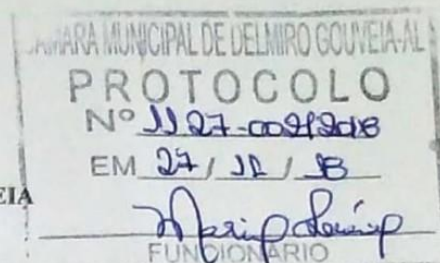 CÂMARA MUNICIPAL DE DELMIRO GOUVEIA-AL
PROTOCOLO
Nº 1127-002/2018
EM 27 / 11 / 18
EIA
FUNCIONÁRIO